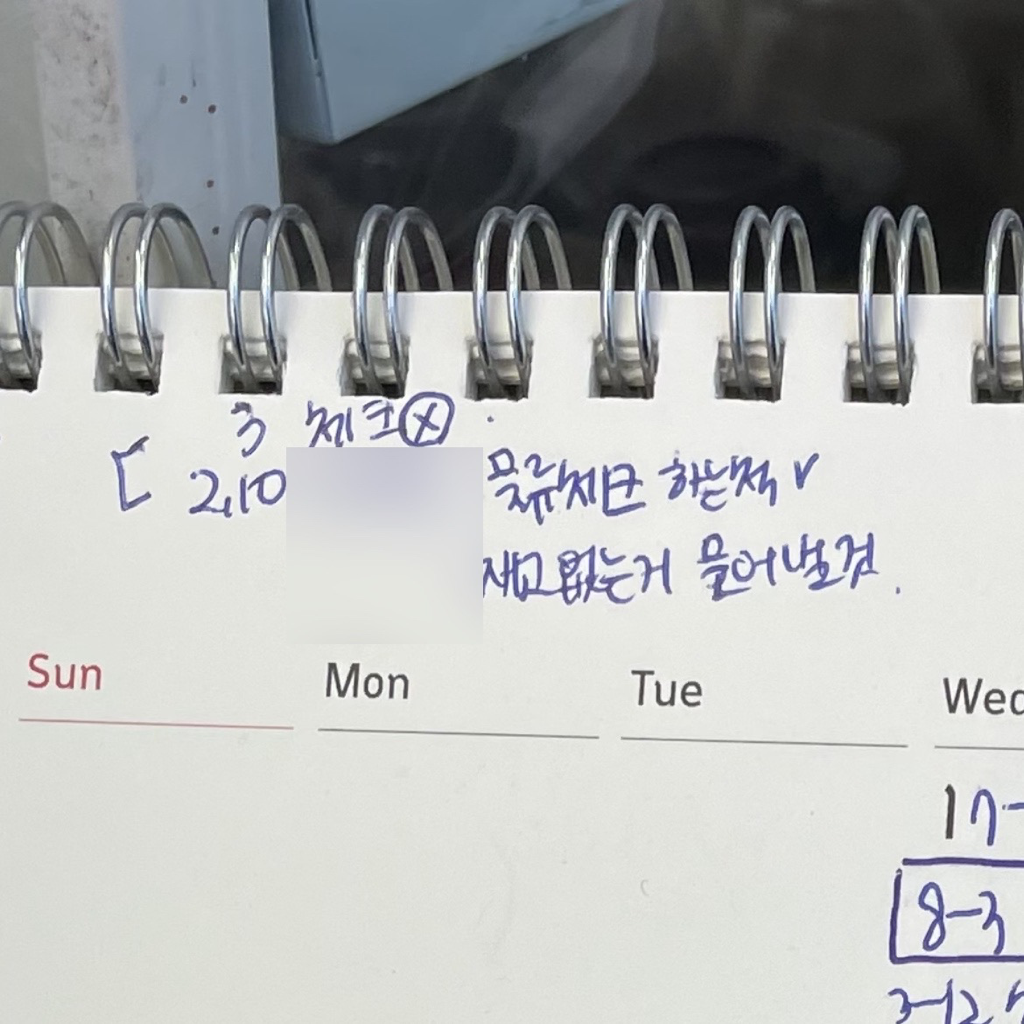 3 체크ⓧ
[ 2,10 물류체크 하는척 v
재고없는거 물어낼것.
Sun Mon Tue Wed
17-
8-3
3-12